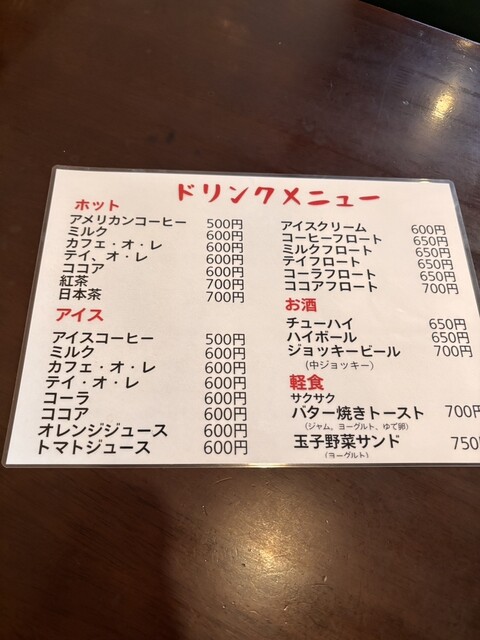 ドリンクメニュー
ホット
アメリカンコーヒー 500円
ミルク 600円
カフェ・オ・レ 600円
テイ、オ・レ 600円
ココア 600円
紅茶 700円
日本茶 700円
アイス
アイスコーヒー 500円
ミルク 600円
カフェ・オ・レ 600円
テイ・オ・レ 600円
コーラ 600円
ココア 600円
オレンジジュース 600円
トマトジュース 600円
アイスクリーム 600円
コーヒーフロート 650円
ミルクフロート 650円
テイフロート 650円
コーラフロート 650円
ココアフロート 700円
お酒
チューハイ 650円
ハイボール 650円
ジョッキービール 700円
(中ジョッキー)
軽食
サクサク
バター焼きトースト 700円
(ジャム、ヨーグルト、ゆで卵)
玉子野菜サンド 750円
(ヨーグルト)